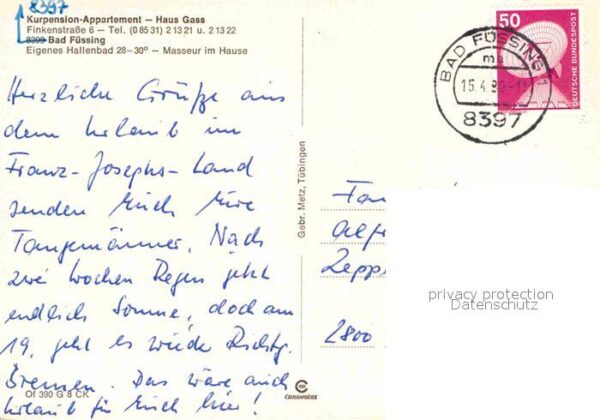 8397
Kurpension-Appartement — Haus Gass
Finkenstraße 6 — Tel. (0 85 31) 2 13 21 u. 2 13 22
8399 Bad Füssing
Eigenes Hallenbad 28-30° — Masseur im Hause
Herzliche Grüße aus
dem Urlaub im
Franz-Josephs-Land
senden Euch Eure
Tangemänner. Nach
zwei Wochen Regen jetzt
endlich Sonne, doch am
19. geht es wieder Richtg.
Bremen. Das wäre auch
Urlaub für Euch hier!
Of 390 G 8 CK
Gebr. Metz, Tübingen
Cekacolor
50
DEUTSCHE BUNDESPOST
BAD FÜSSING
15.4.80
8397
Zepp
2800
privacy protection
Datenschutz